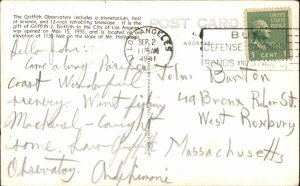 The Griffith Observatory includes a planetarium, hall
of science, and 12-inch refracting telescope. It is a
gift of Griffith J. Griffith to the City of Los Angeles
was opened on May 15, 1935, and is located on an
elevation of 1135 feet on the slope of Mt. Hollywood.
POST CARD
LOS ANGELES
SEP 2
1941
BUY
DEFENSE
BONDS
1 CENT
ADDRESS
Hello John:
Came a long
Coast Wonderful
scenery. Went fishing
Mackerel - Caught
some. Saw
Observatory
John Burton
49 Bronx Road St
West Roxbury
Massachusetts